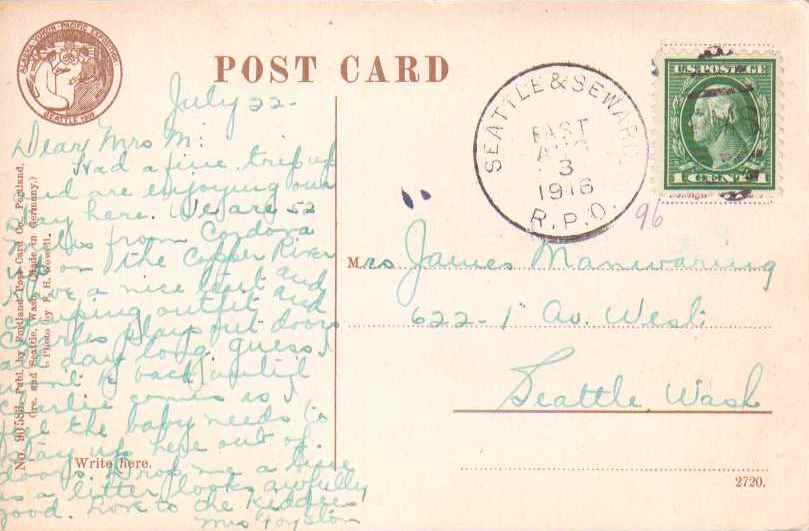 ALASKA YUKON PACIFIC EXPOSITION
SEATTLE 1909
POST CARD
SEATTLE & SEWARD
EAST
AUG
3
1916
R.P.O.
U.S. POSTAGE
1 CENT 1
96
July 22-
Dear Mrs M:
Had a fine trip up
and are enjoying our
stay here. We are 52
miles from Cordova
up on the Copper River
Have a nice tent and
camping outfit and
Charles plays out doors
all day long. guess I
wont be back until
Charlie comes as I
feel the baby needs to
stay up here out of
doors. Drop me a line
as a letter looks awfully
good. Love to the kiddies
Mrs
Mrs James Manwaring
622-1" Av. West.
Seattle Wash
Write here.
2720.
Publ. by Portland Post Card Co., Portland,
Ore. and Seattle, Wash. Made in Germany.)
Photo by F. H. Nowell.